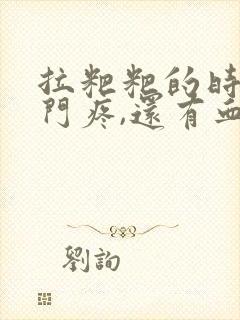 拉粑粑的時
門疼,還有血
劉詢